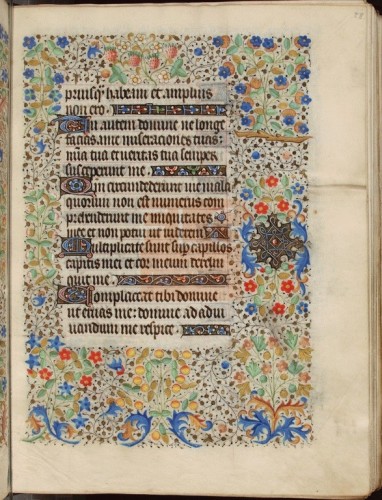 priusq̃ habeam et amplius
non ero.
Tu autem domine ne longe
facias a me miseraciones tuas:
mĩa tua et veritas tua semper
susceperunt me.
Qm̃ circumdederunt me mala
quorum non est numerus com
prehenderunt me iniquitates
mee et non potui ut viderem
Multiplicate sunt sup̃ capillos
capitis mei et cor meum dereli
quit me.
Complaceat tibi domine
ut eruas me: domine ad adiu
uandum me respice.